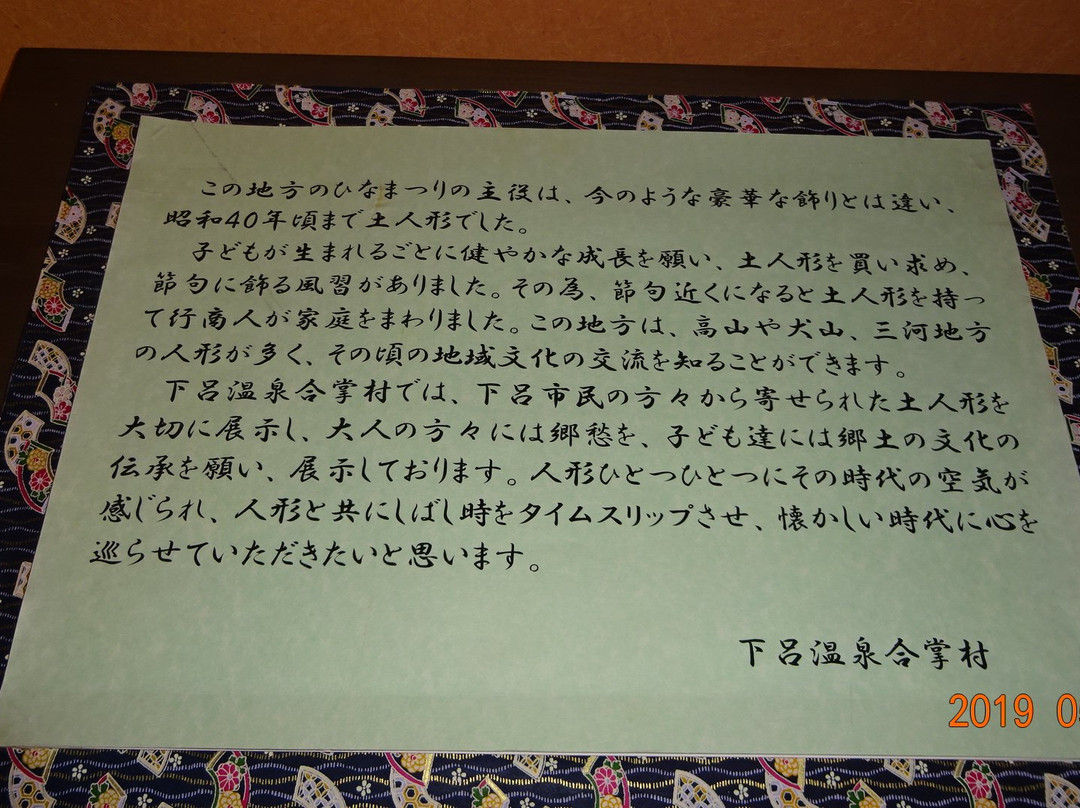 この地方のひなまつりの主役は、今のような豪華な飾りとは違い、
昭和40年頃まで土人形でした。
子どもが生まれるごとに健やかな成長を願い、土人形を買い求め、
節句に飾る風習がありました。その為、節句近くになると土人形を持っ
て行商人が家庭をまわりました。この地方は、高山や犬山、三河地方
の人形が多く、その頃の地域文化の交流を知ることができます。
下呂温泉合掌村では、下呂市民の方々から寄せられた土人形を
大切に展示し、大人の方々には郷愁を、子ども達には郷土の文化の
伝承を願い、展示しております。人形ひとつひとつにその時代の空気が
感じられ、人形と共にしばし時をタイムスリップさせ、懐かしい時代に心を
巡らせていただきたいと思います。
下呂温泉合掌村
2019 0